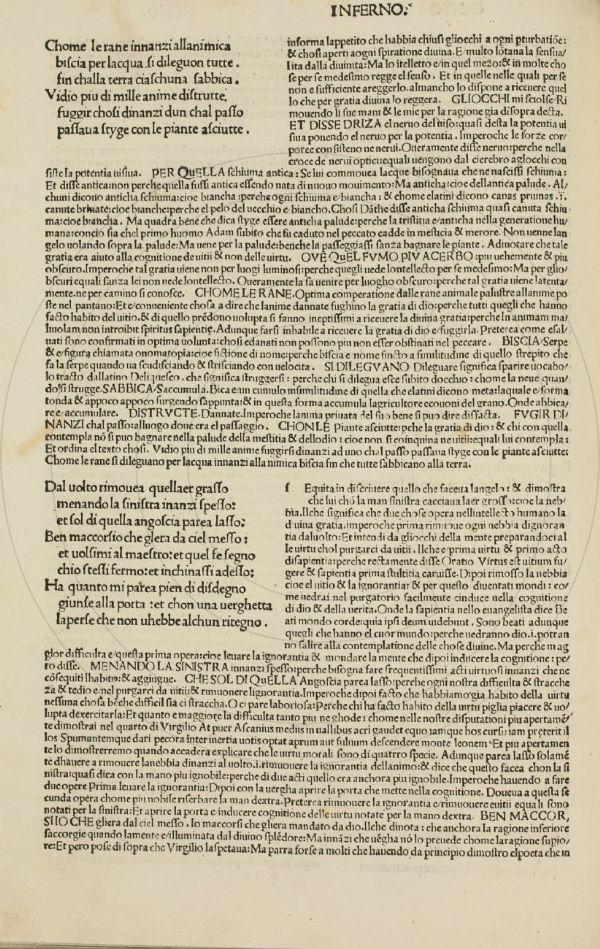 INFERNO.
Chome le rane innanzi allanimica
biscia per lacqua si dileguon tutte.
fin challa terra ciaschuna sabbica.
Vidio piu di mille anime distrutte.
fuggir chosi dinanzi dun chal passo
passaua styge con le piante asciutte.
informa lappetito che habbia chiusi gliocchi a ogni pturbatiõe:
& chosi aperti aogni spiratione diuina. E multo lõtana la sensua/
lita dalla diuinita: Ma lo itelletto e/in quel mezo: & in molte cho
se per se medesimo regge el senso. Et in quelle nelle quali per se
non e sufficiente areggerlo. almancho lo dispone a riceuere quel
lo che per gratia diuina lo reggera. GLIOCCHI mi sciolse: Ri
mouendo li sue mani & le mie per la ragione gia disopra decta.
ET DISSE DRIZA el neruo del uiso: quasi desta la potentia ui
siua ponendo el neruo per la potentia. Imperoche le forze cor/
poree consisteno ne nerui. Oueramente disse neruo: perche nella
croce de nerui optici: equali uengono dal cierebro aglocchi con
siste la potentia uisiua. PER QVELLA schiuma antica: Se lui commouea lacque bisognaua che ne nascissi schiuma:
Et disse antica: non perche quella fussi antica essendo nata di nuouo mouimento: Ma anticha: cioe dellantica palude. Al/
chuni dicono anticha schiuma: cioe biancha: perche ogni schiuma e/biancha: & chome elatini dicono canas pruinas. i.
canute brinate: cioe bianche: perche el pelo del uecchio e/biancho. Chosi Dãthe disse anticha schiuma quasi canuta schiu
ma: cioe biancha. Ma quadra bene che dica styge essere anticha palude: perche la tristitia e/anticha nella generatione hu
mana: concio sia chel primo huomo Adam subito che fu caduto nel peccato cadde in mestitia & merore. Non uenne lan
gelo uolando sopra la palude: Ma uene per la palude: benche la passeggiassi sanza bagnare le piante. Adinotare che tale
gratia era aiuto alla cognitione de uitii & non delle uirtu. OVE QVEL FVMO PIV ACERBO: piu uehemente & piu
obscuro. Imperoche tal gratia uiene non per luogi luminosi: perche quegli uede lontellecto per se medesimo: Ma per glio/
bscuri equali sanza lei non uede lontellecto. Oueramente la fa uenire per luogho obscuro: perche tal gratia uiene latenta/
mente. ne per camino si conosce. CHOME LE RANE. Optima comperatione dalle rane animale palustre allanime po
ste nel pantano: Et e/conueniente chosa a dire che lanime dannate fughino la gratia di dio: perche tutti quegli che hanno
facto habito del uitio. & di quello prẽdono uolupta si fanno ineptissimi a riceuere la diuina gratia: perche in animam ma/
liuolam non introibit spiritus sapientiẹ. Adunque farsi inhabile a riceuere la gratia di dio e/fuggirla. Preterea come esal/
uati sono confirmati in optima uolunta: chosi edanati non possono piu non esser obstinati nel peccare. BISCIA/Serpe
& e/figura chiamata onomatopia: cioe fictione di nome: perche biscia e/nome fincto a similitudine di quello strepito che
fa la serpe quando ua scudisciando & strisciando con uelocita. SI DILEGVANO Dileguare significa sparire uocabo/
lo tracto dallatino Deliquesco. che significa struggersi: perche chi si dilegua esce subito docchio: chome la neue quan/
do si strugge. SABBICA/Saccumula. Bica e/un cumulo insimilitudine di quella che elatini dicono meta: laquale e/forma
tonda & appoco appoco surgendo sappunta: & in questa forma accumula lagricultore ecouoni del grano. Onde abbica/
re e/accumulare. DISTRVCTE. Dannate. Imperoche lanima priuata del suo bene si puo dire disfacta. FVGIR DI/
NANZI chal passo: alluogo doue era el passaggio. CHON LE Piante asciutte: pche la gratia di dio: & chi con quella
contempla nõ si puo bagnare nella palude della mestitia & dellodio: cioe non si coinquina ne uitii: equali lui contempla:
Et ordina el texto chosi. Vidio piu di mille anime fuggirsi dinanzi ad uno chal passo passaua styge con le piante asciutte:
Chome le rane si dileguano per lacqua innanzi alla nimica biscia fin che tutte sabbicano alla terra.
Dal uolto rimouea quellaer grasso
menando la sinistra inanzi spesso:
et sol di quella angoscia parea lasso:
Ben maccorsio che glera da ciel messo:
et uolsimi al maestro: et quel fe segno
chio stessi fermo: et inchinassi adesso:
Ha quanto mi parea pien di disdegno
giunse alla porta: et chon una uerghetta
laperse che non uhebbe alchun ritegno.
f Equita in discriuere quello che faceita langelo: & dimostra
che lui chõ la man sinistra cacciaua laer grosso: cioe la neb/
bia. Ilche significa che due chose opera nellintellecto humano la
diuina gratia. imperoche prima rimuoue ogni nebbia dignoran
tia daluolto: Et intendi da gliocchi della mente preparandoci al
le uirtu chol purgarci da uitii. Ilche e/prima uirtu & primo acto
disapientia: perche rectamente disse Oratio Virtus est uitium fu/
gere & sapientia prima stultitia caruisse. Dipoi rimosso la nebbia
cioe el uitio & la ignorantia: & per questo diuentati mondi: co/
me uedrai nel purgatorio facilmente cinduce nella cognitione
di dio & della uerita. Onde la sapientia nello euangelista dice Be
ati mondo corde: quia ipsi deum uidebunt. Sono beati adunque
quegli che hanno el cuor mundo: perche uedranno dio. i. potran
no salire alla contemplatione delle chose diuine. Ma perche mag
gior difficulta e/questa prima opera: cioe leuare la ignorantia & mondare la mente che dipoi inducere la cognitione: pe/
ro disse. MENANDO LA SINISTRA innanzi spesso: perche bisogna fare frequentissimi acti uirtuosi innanzi che ne
cõsequiti lhabito: & aggiugne. CHE SOL DI QVELLA Angoscia parea lasso: perche ogni nostra difficulta & stracche
za & tedio e/nel purgarci da uitii: & rimuouere lignorantia. Imperoche dipoi facto che habbiamo gia habito della uirtu
nessuna chosa bẽche difficil sia ci straccha. O ci pare laboriosa: Perche chi ha facto habito della uirtu piglia piacere & uo/
lupta dexercitarla: Et quanto e/maggiore la difficulta tanto piu ne ghode: chome nelle nostre disputationi piu apertamẽ/
te dimostrai nel quarto di Virgilio At puer Ascanius mediis in uallibus acri gaudet equo iamque hos cursu iam preterit il
los Spumantemque dari pecora inter inertia uotis optat aprum aut fuluum descendere monte leonem. Et piu apertamen
te lo dimostrerremo quando accadera explicare che le uirtu morali sono di quatro specie. Adunque parea lasso solamẽ
te dhauere a rimouere lanebbia dinanzi al uolto. i. rimuouere la ignorantia dellanimo: & dice che quello facea chon la si
nistra: quasi dica con la mano piu ignobile: perche di due acti quello era anchora piu ignobile. Imperoche hauendo a fare
due opere Prima leuare la ignorantia: Dipoi con la uergha aprire la porta che mette nella cognitione. Doueua a questa se
cunda opera chome piu nobile riserbare la man dextra. Preterea rimuouere la ignorantia e/rimuouere euitii equali sono
notati per la sinistra: Et aprire la porta e inducere cognitione delle uirtu notate per la mano dextra. BEN MACCOR/
SIIO CHE gliera dal ciel messo. io maccorsi che gliera mandato da dio. Ilche dinota: che anchora la ragione inferiore
saccorgie quando lamente e/illuminata dal diuino splẽdore: Ma innãzi che uẽgha nõ lo preuede chome laragione supio/
re: Et pero pose di sopra che Virgilio laspettaua: Ma parra forse a molti che hauendo da principio dimostro elpoeta che in